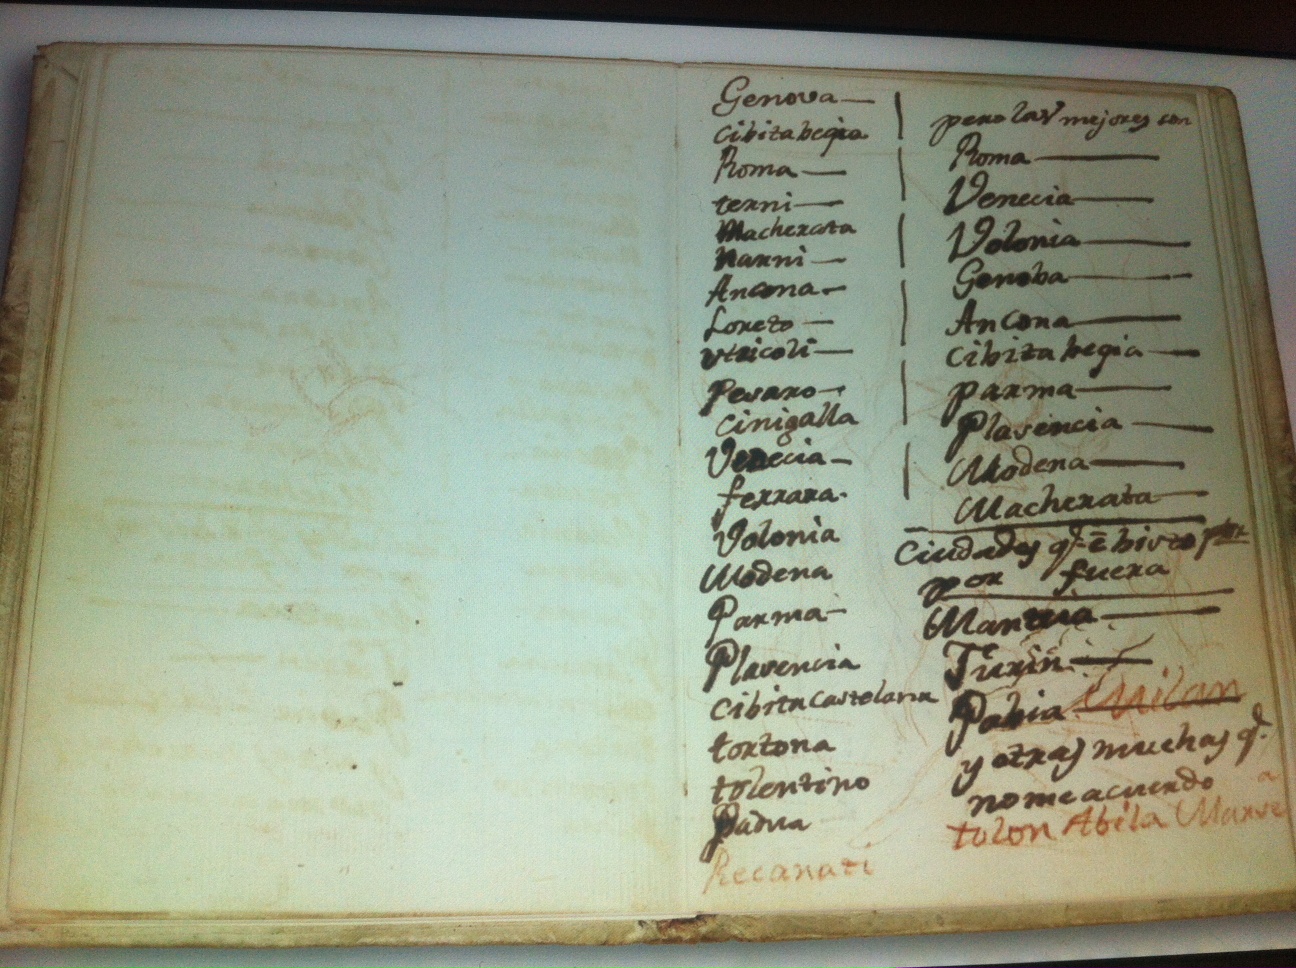 Genova
cibitabegia
Roma
terni
Macherata
Narni
Ancona
Loreto
vtricoli
Pesaro
Cinigalla
Venecia
ferrara
Volonia
Modena
Parma
Plasencia
cibita Castelana
tortona
tolentino
Padua
Recanati
pero las mejores son
Roma
Venecia
Volonia
Genoba
Ancona
cibita begia
parma
Plasencia
Modena
Macherata
Ciudades q.e e bisto
por fuera
Mantua
Turin
Pabia Milan
y otras muchas q.e
no me acuerdo
tolon Abila